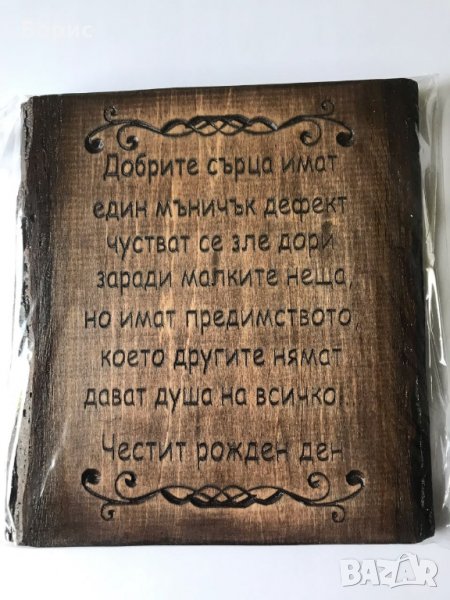 Добрите сърца имат
един мъничък дефект
чустват се зле дори
заради малките неща,
но имат предимството,
което другите нямат
дават душа на всичко!
Честит рожден ден
BAZAR